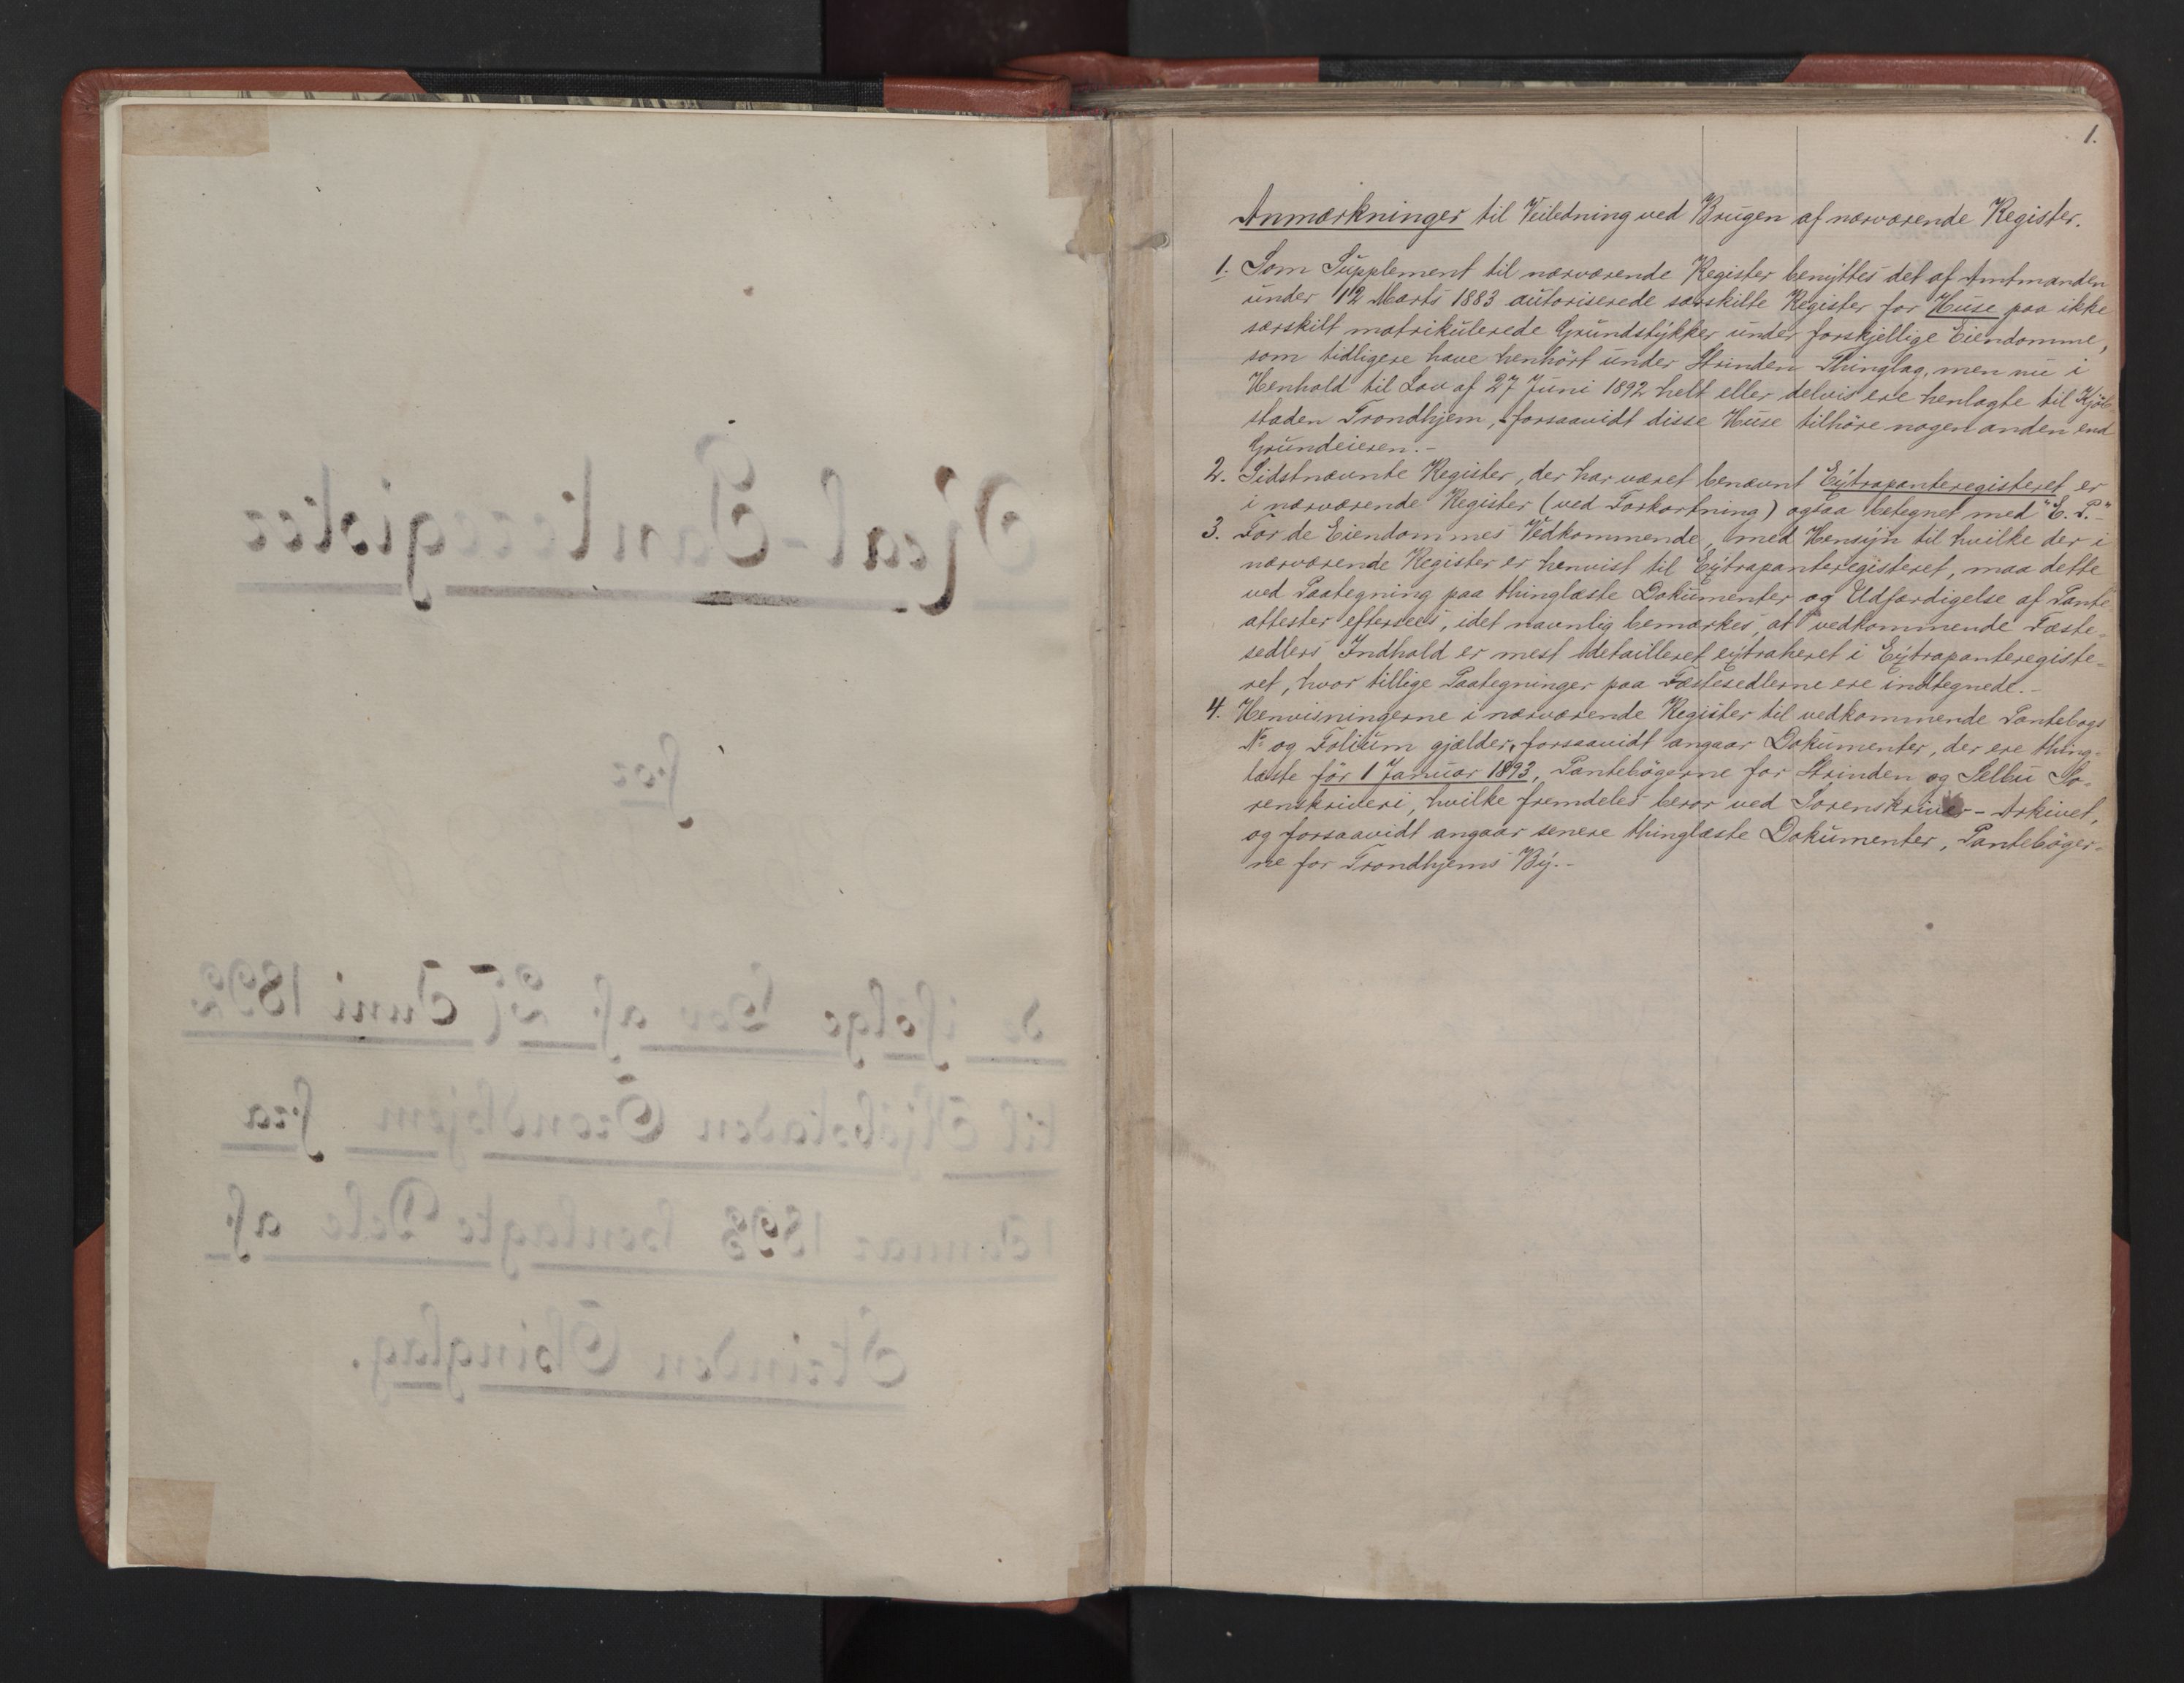 Real-Panteregister
for
de ifølge Lov af 27 Juni 1892
til Kjöbstaden Trondhjem fra
1 Januar 1893 henlagte Dele af
Strinden Thinglag.
1.
Anmærkninger til Veiledning ved Brugen af nærværende Register.
1. Som Supplement til nærværende Register benyttes det af Amtmanden
under 12 Marts 1883 autoriserede særskilte Register for Huse paa ikke
særskilt matrikulerede Grundstykker under forskjellige Eiendomme,
som tidligere have henhört under Strinden Thinglag, men nu i
Henhold til Lov af 27 Juni 1892 helt eller delvis ere henlagte til Kjöb-
staden Trondhjem, forsaavidt disse Huse tilhöre nogen anden end
Grundeieren.-
2. Sidstnævnte Register, der har været benævnt Extrapanteregisteret er
i nærværende Register (ved Forkortning) ogsaa betegnet med "E. P."-
3. For de Eiendommes Vedkommende, med Hensyn til hvilke der i
nærværende Register er henvist til Extrapanteregisteret, maa dette
ved Paategning paa thinglæste Dokumenter og Udfærdigelse af Pante-
attester eftersees, idet navnlig bemærkes, at vedkommende Fæste-
sedlers Indhold er mest detailleret extraheret i Extrapanteregiste-
ret, hvor tillige Paategninger paa Fæstesedlerne ere indtegnede.-
4. Henvisningerne i nærværende Register til vedkommende Pantebogs
No og Folium gjælder, forsaavidt angaar Dokumenter, der ere thing-
læste för 1 Januar 1893, Pantebögerne for Strinden og Selbu So-
renskriveri, hvilke fremdeles beror ved Sorenskriver-Arkivet,
og forsaavidt angaar senere thinglæste Dokumenter, Panteböger-
ne for Trondhjems By.-